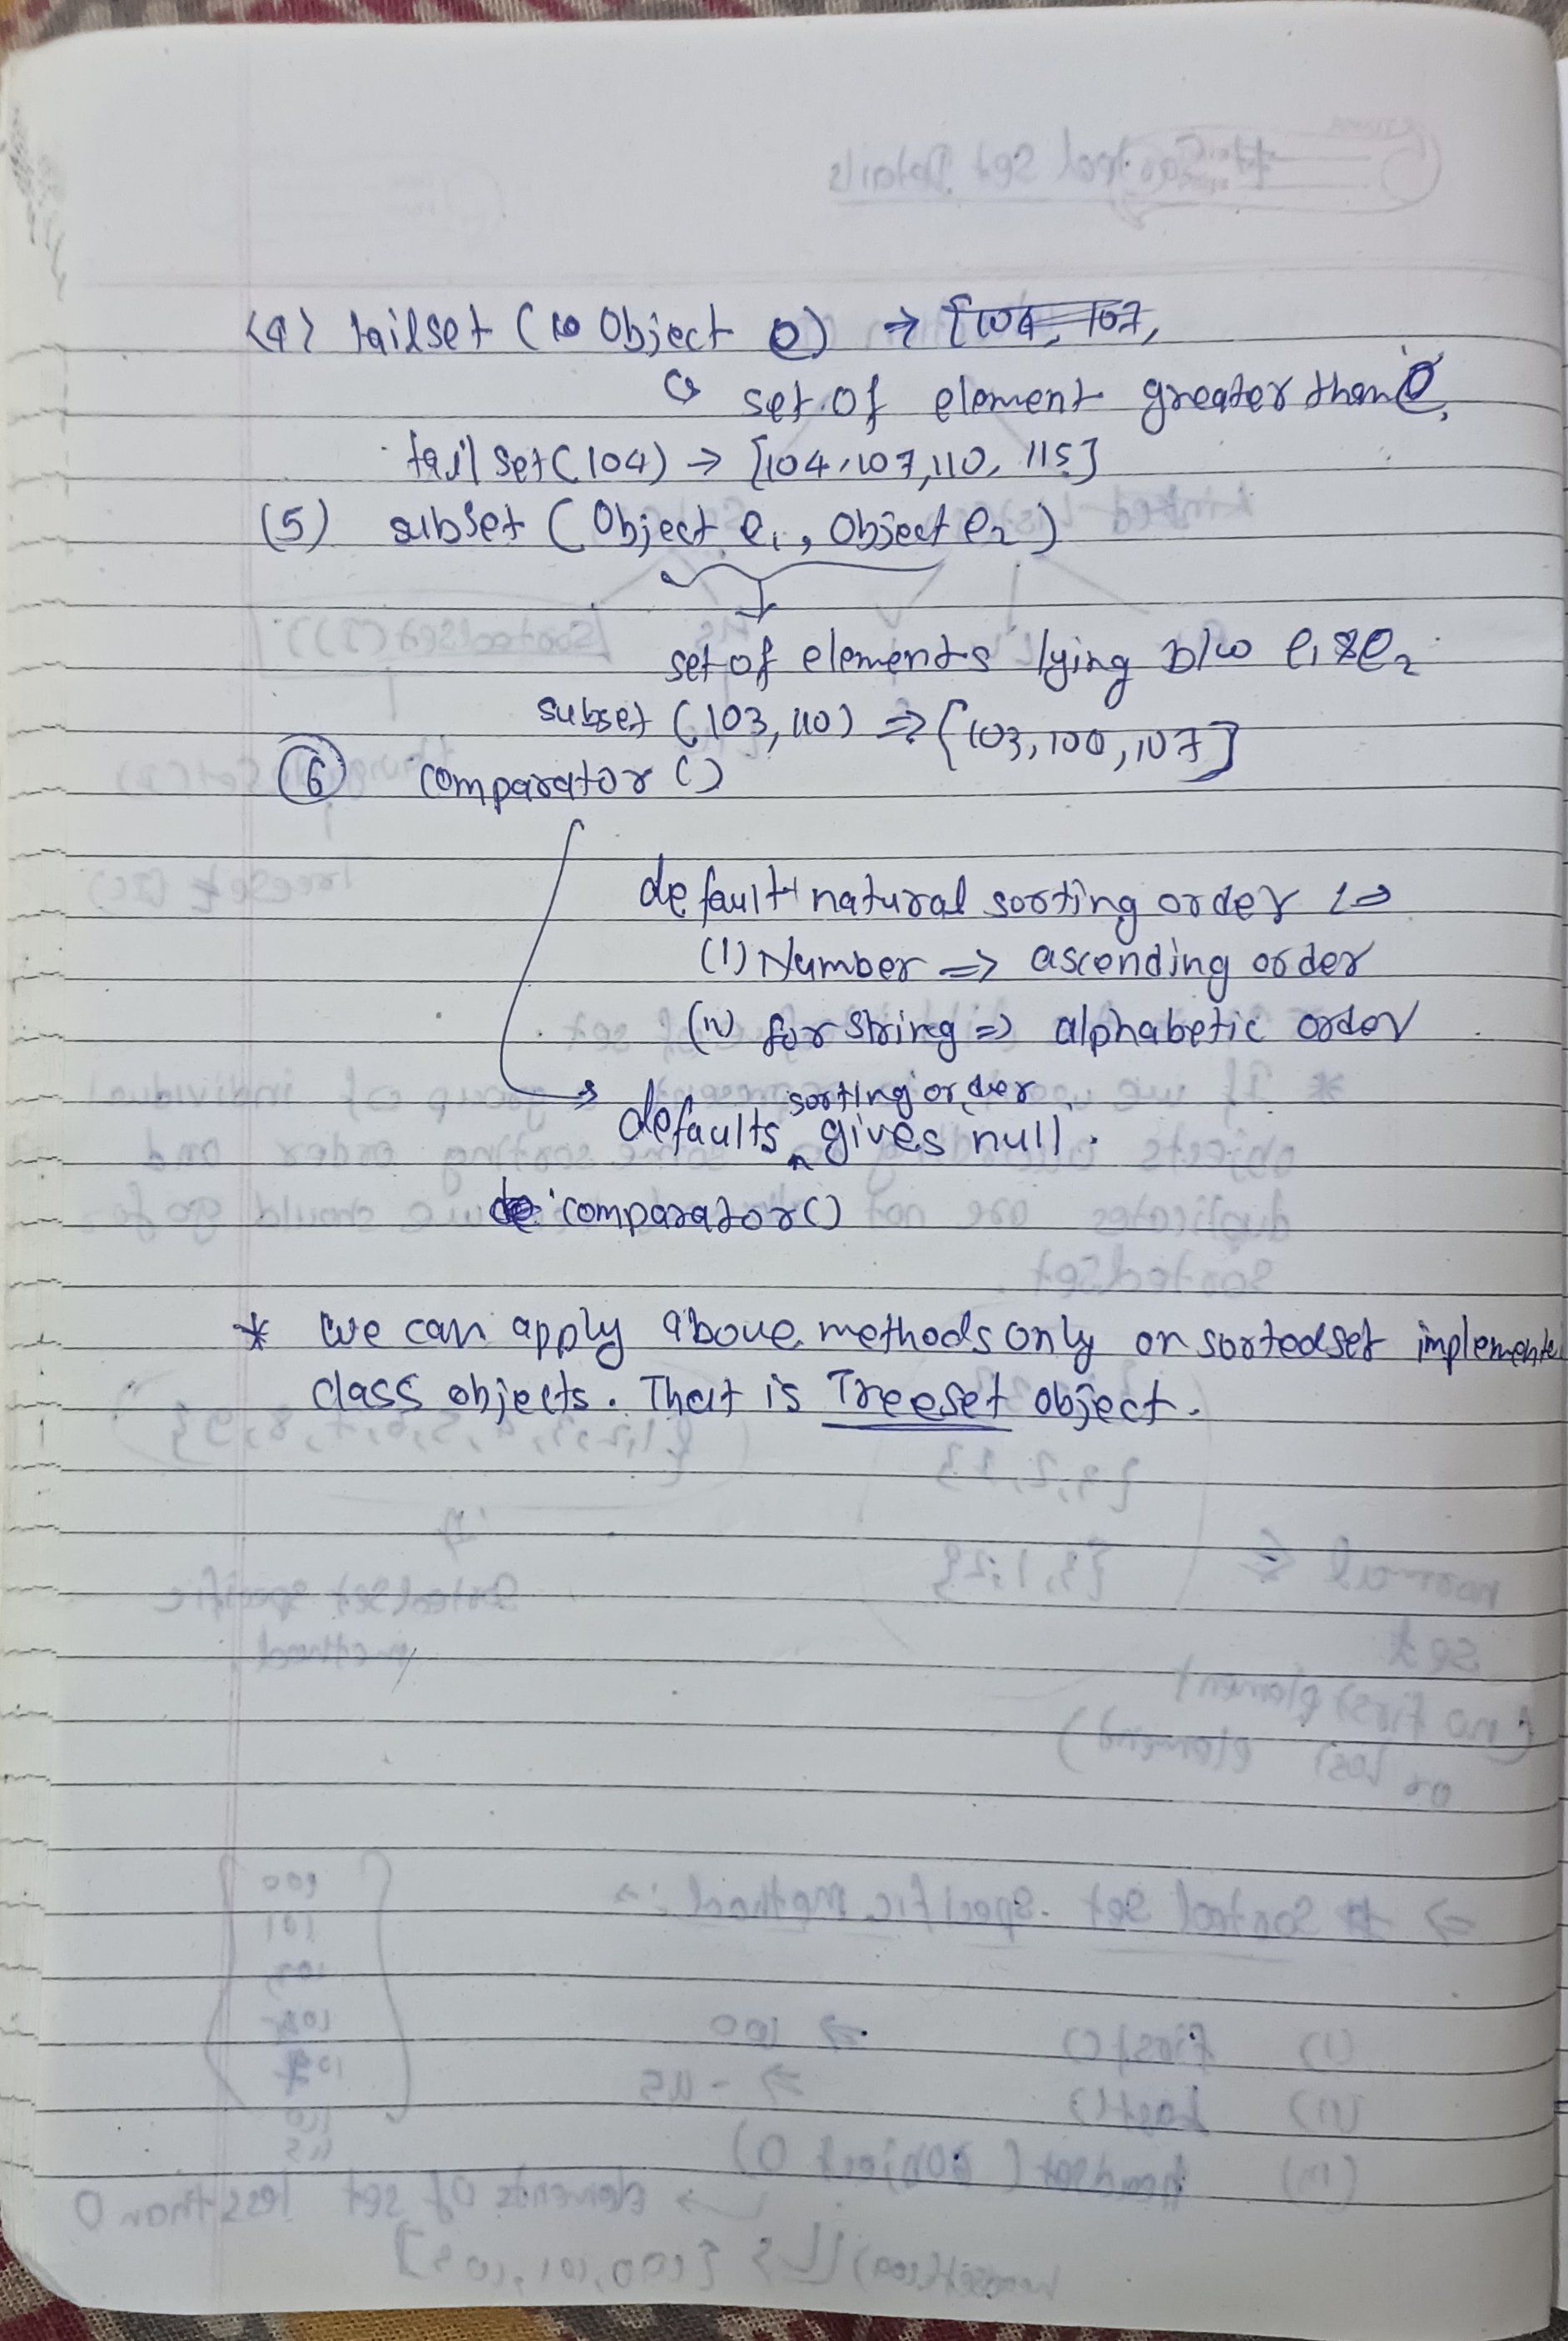 (4) tailset (Object O) →
set of element greater than O,
tail set(104) → [104,107,110, 115]
(5) subset (Object e1, Object e2)
set of elements lying b/w e1 & e2
subset (103, 110) => [103, 100, 107]
(6) comparator ()
default natural sorting order :=>
(1) Number => ascending order
(ii) for string => alphabetic order
sorting order
defaults gives null.
comparator()
* we can apply above methods only on sortedset implemente
class objects. That is Treeset object.